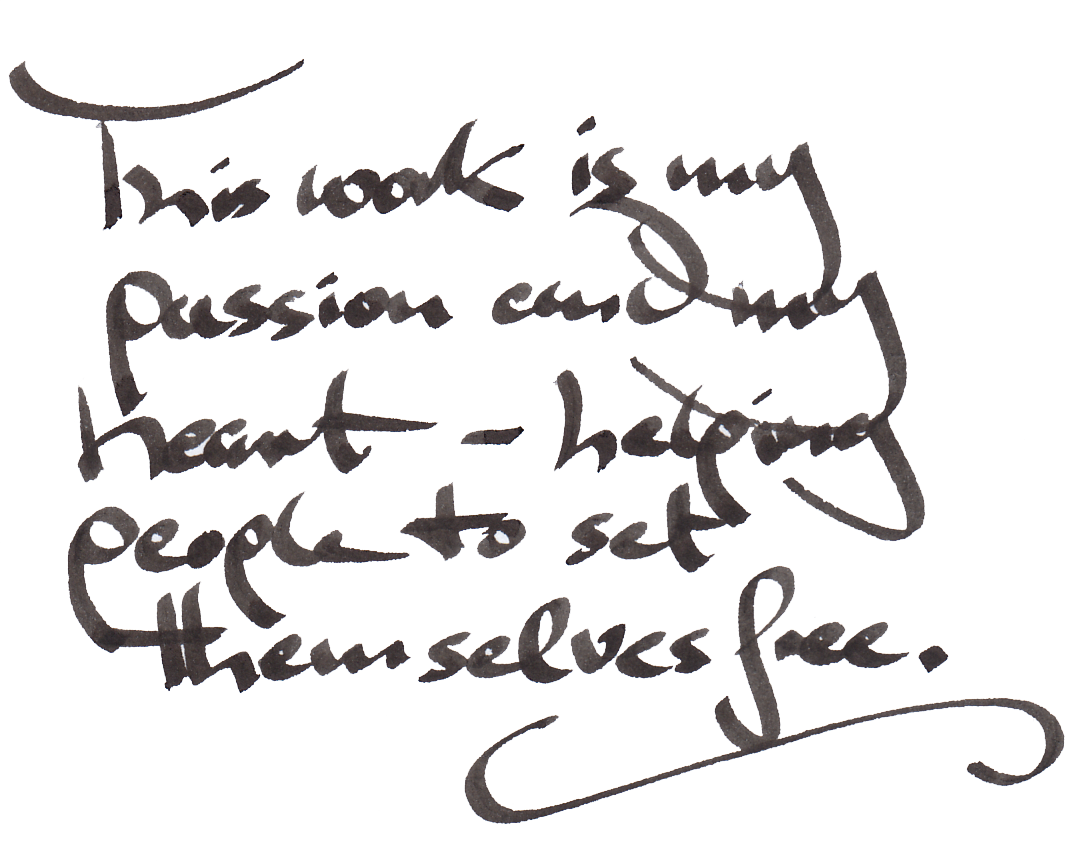 This work is my
passion and my
heart – helping
people to set
themselves free.